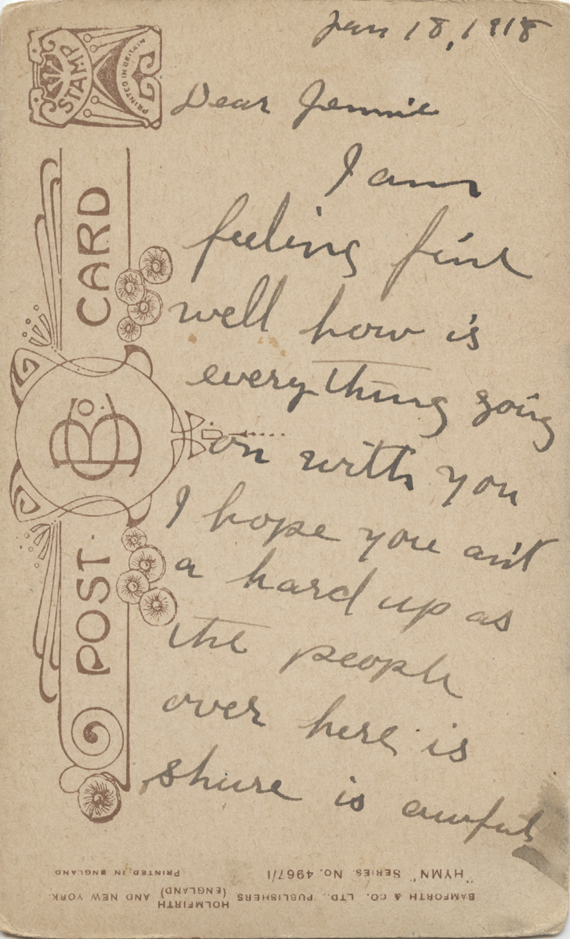 Jan 18, 1918
Dear Jennie
I am
feeling fine
well how is
everything going
on with you
I hope you ain't
a hard up as
the people
over here is
shure is awful
STAMP
PRINTED IN BRITAIN
POST CARD
B & Co.
BAMFORTH & CO., LTD., PUBLISHERS (ENGLAND) HOLMFIRTH AND NEW YORK
"HYMN" SERIES. NO. 4967/1 PRINTED IN ENGLAND